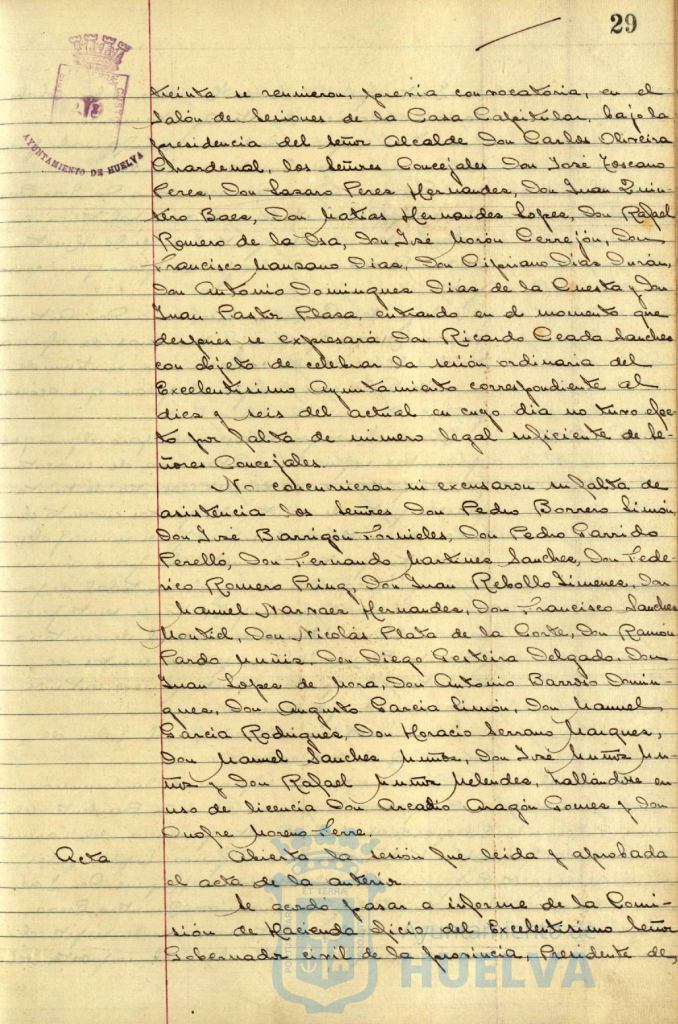 29
AYUNTAMIENTO DE HUELVA
treinta se reunieron, previa convocatoria, en el
Salón de Sesiones de la Casa Capitular, bajo la
presidencia del Señor Alcalde Don Carlos Oliveira
Chardenal, los Señores Concejales Don José Toscano
Peres, Don Lazaro Peres Hernandes, Don Juan Quin-
tero Baes, Don Matias Hernandes Lopes, Don Rafael
Romero de la Osa, Don José Morón Cerrejón, Don
Francisco Mansano Dias, Don Cipriano Dias Durán,
Don Antonio Domingues Dias de la Cuesta y Don
Juan Pastor Plasa, entrando en el momento que
después se expresará Don Ricardo Ceada Sanches
con objeto de celebrar la sesión ordinaria del
Excelentisimo Ayuntamiento correspondiente al
dies y seis del actual en cuyo dia no tuvo efec-
to por falta de número legal suficiente de Se-
ñores Concejales.
No concurrieron ni excusaron su falta de
asistencia los Señores Don Pedro Borrero Limón,
Don José Barrigón Fornieles, Don Pedro Garrido
Perelló, Don Fernando Martines Sanches, Don Fede-
rico Romero Prinq, Don Juan Rebollo Jimenes, Don
Manuel Narvaes Hernandes, Don Francisco Sanches
Montiel, Don Nicolás Plata de la Corte, Don Ramón
Pardo Muñis, Don Diego Gesteira Delgado, Don
Juan Lopes de Mora, Don Antonio Barroso Domin-
gues, Don Augusto Garcia Limón, Don Manuel
Garcia Rodrigues, Don Horacio Serrano Marques,
Don Manuel Sanches Muños, Don José Muños Mu-
ños y Don Rafael Muños Melendes, hallándose en
uso de licencia Don Arcadio Aragón Gomes y Don
Onofre Moreno Ferre.
Acta
Abierta la sesión fue leida y aprobada
el acta de la anterior
Se acordó pasar a informe de la Comi-
sión de Hacienda oficio del Excelentisimo Señor
Gobernador civil de la provincia, Presidente de
Ayuntamiento de
HUELVA